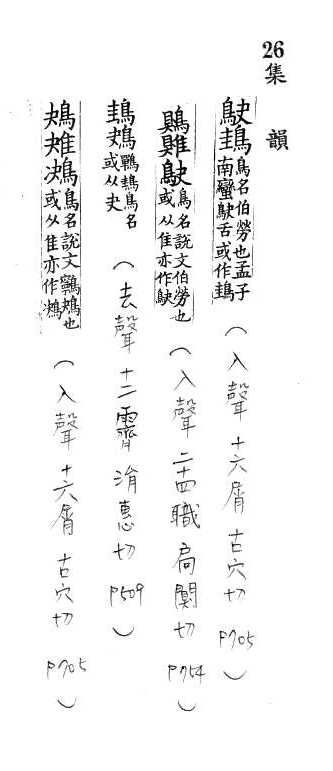 26集韻
鴃䳏鳥名伯勞也孟子南蠻鴃舌或作䳏(入聲十六屑古穴切P705)
鶪鴃鳥名說文伯勞也或从隹亦作鴃(入聲二十四職局闃切P754)
䳏鴂鷅䳏鳥名或从夬(去聲十二霽涓惠切P509)
鴂鳥名說文寧鴂也或从隹亦作鴂(入聲十六屑古穴切P705)